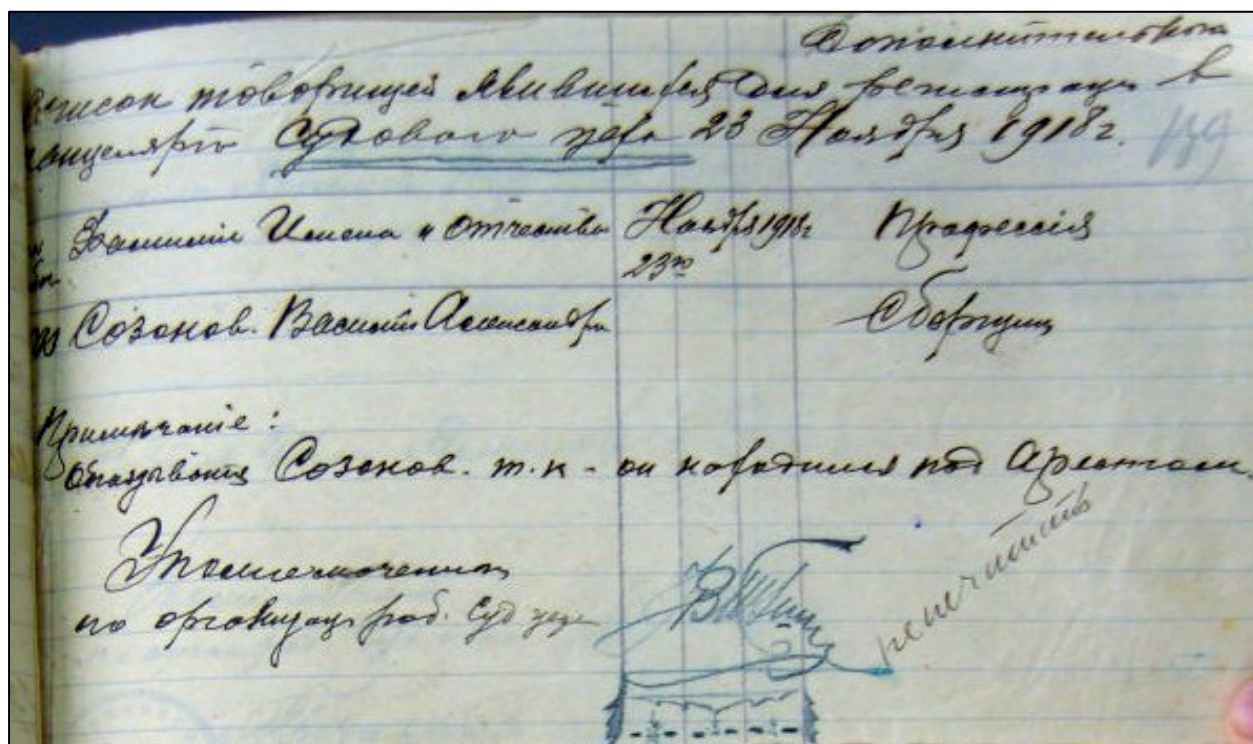 Дополнительный
Список товорищей явившихся для регистрации в
канцелярию Судового цеха 23 Ноября 1918 г.
139
Фамилии Имена и отчества Ноября 1918 г Профессия
23го
Созонов. Василий Александр Сборщик
Примечание:
Опаздывания Созонов. т.к - он находился под Арестом.
Уполномоченный
по организац. раб. Суд цеха